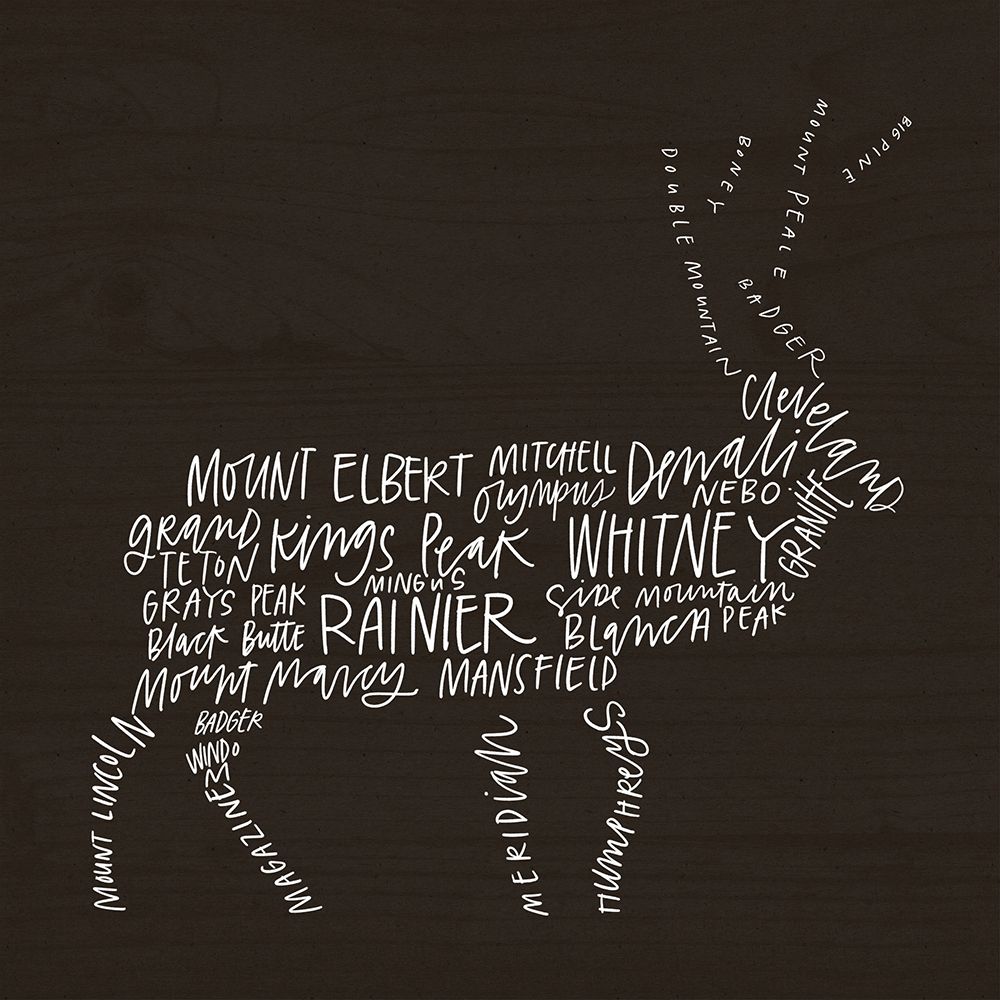 BIG PINE
MOUNT PEALE
BONEY
DOUBLE MOUNTAIN
BADGER
Cleveland
MOUNT ELBERT
MITCHELL
Olympus
Denali
NEBO
GRANITE
grand
TETON
Kings Peak
WHITNEY
MINGUS
GRAYS PEAK
Black Butte
RAINIER
Side Mountain
Blanca PEAK
Mount Marcy
MANSFIELD
MOUNT LINCOLN
BADGER
WINDOM
MAGAZINE
MERIDIAN
HUMPHREYS